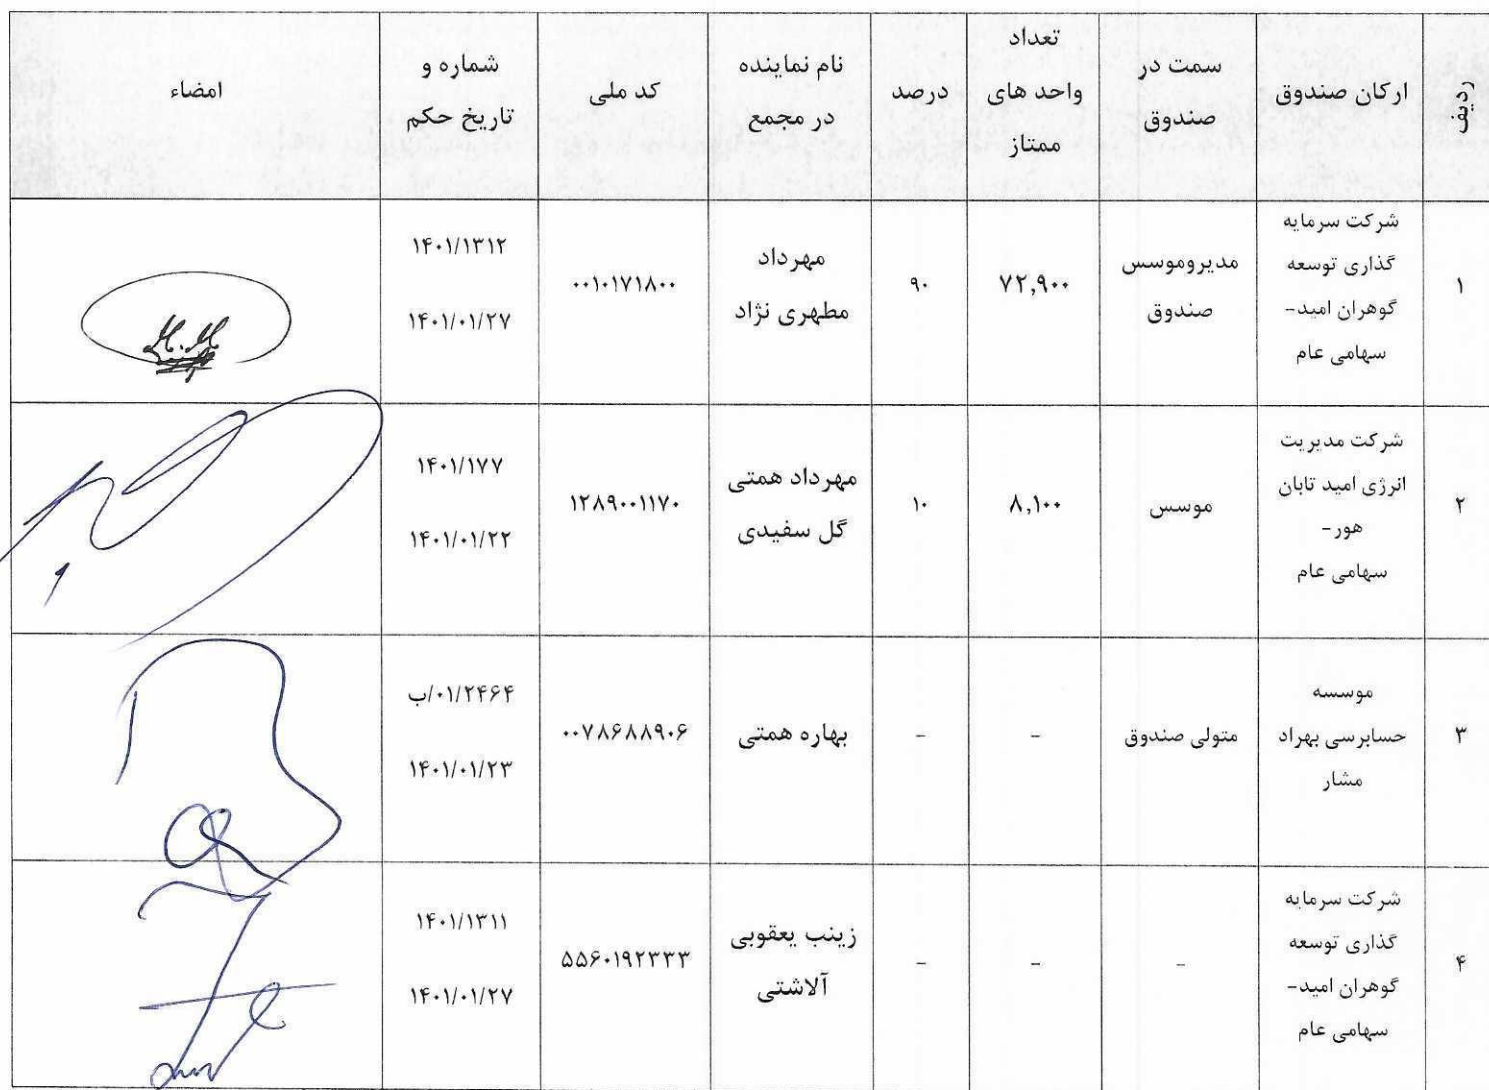 ردیف
ارکان صندوق
سمت در
صندوق
تعداد
واحد های
ممتاز
درصد
نام نماینده
در مجمع
کد ملی
شماره و
تاریخ حکم
امضاء
۱
شرکت سرمایه
گذاری توسعه
گوهران امید-
سهامی عام
مدیروموسس
صندوق
۷۲,۹۰۰
۹۰
مهرداد
مطهری نژاد
۰۰۱۰۱۷۱۸۰۰
۱۴۰۱/۱۳۱۲
۱۴۰۱/۰۱/۲۷
M.M
۲
شرکت مدیریت
انرژی امید تابان
هور-
سهامی عام
موسس
۸,۱۰۰
۱۰
مهرداد همتی
گل سفیدی
۱۲۸۹۰۰۱۱۷۰
۱۴۰۱/۱۷۷
۱۴۰۱/۰۱/۲۲
۳
موسسه
حسابرسی بهراد
مشار
متولی صندوق
-
-
بهاره همتی
۰۰۷۸۶۸۸۹۰۶
۰۱/۲۴۶۴/ب
۱۴۰۱/۰۱/۲۳
۴
شرکت سرمایه
گذاری توسعه
گوهران امید-
سهامی عام
-
-
-
زینب یعقوبی
آلاشتی
۵۵۶۰۱۹۲۳۳۳
۱۴۰۱/۱۳۱۱
۱۴۰۱/۰۱/۲۷